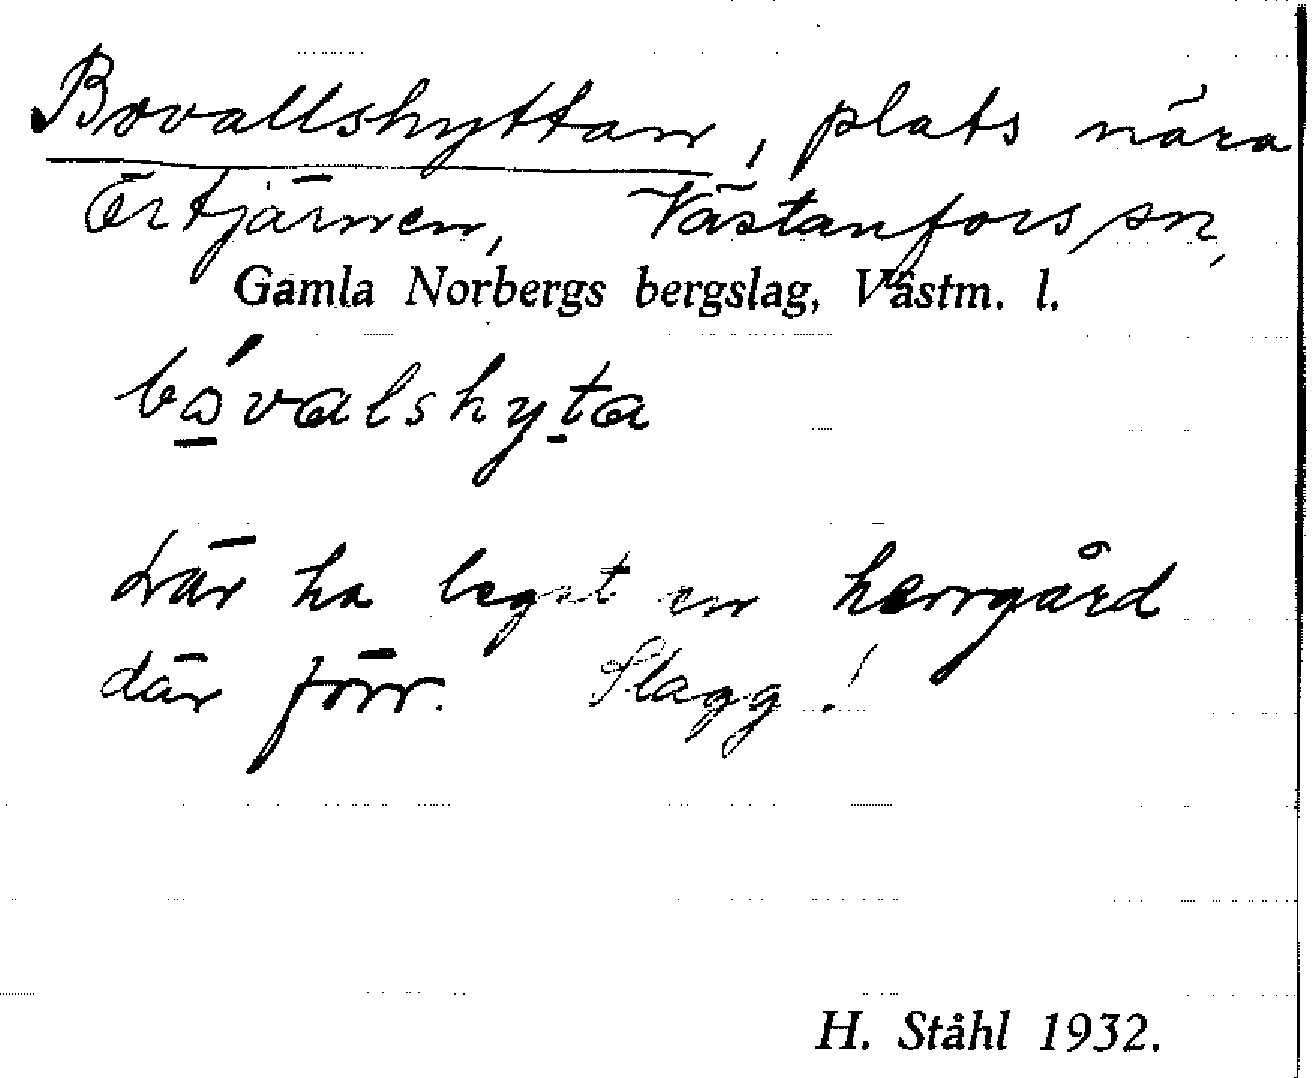 Bovallshyttan, plats nära
Örtjärnen, Västanfors sn,
Gamla Norbergs bergslag, Västm. l.
bó̲valshyt̲a
där ha legat en herrgård
där förr. Slagg!
H. Ståhl 1932.